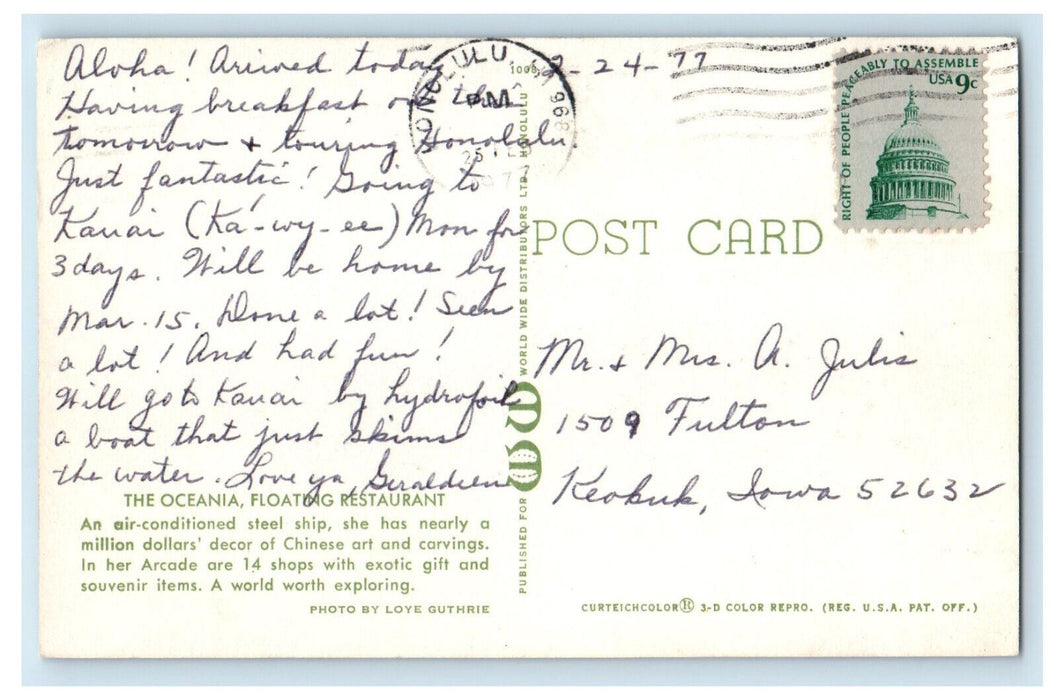 Aloha! Arrived today 2-24-77
Having breakfast on this
tomorrow + touring Honolulu.
Just fantastic! Going to
Kauai (Ka'-wy-ee) Mon for
3 days. Will be home by
Mar. 15. Done a lot! Seen
a lot! And had fun!
Will go to Kauai by hydrofoil
a boat that just skims
the water. Love ya, Geraldeen
THE OCEANIA, FLOATING RESTAURANT
An air-conditioned steel ship, she has nearly a
million dollars' decor of Chinese art and carvings.
In her Arcade are 14 shops with exotic gift and
souvenir items. A world worth exploring.
PHOTO BY LOYE GUTHRIE
PUBLISHED FOR WORLD WIDE DISTRIBUTORS LTD., HONOLULU
HONOLULU, HI 968
PM
25
1977
RIGHT OF PEOPLE PEACEABLY TO ASSEMBLE
USA 9c
POST CARD
Mr. + Mrs. A. Julis
1509 Fulton
Keokuk, Iowa 52632
CURTEICHCOLOR® 3-D COLOR REPRO. (REG. U.S.A. PAT. OFF.)